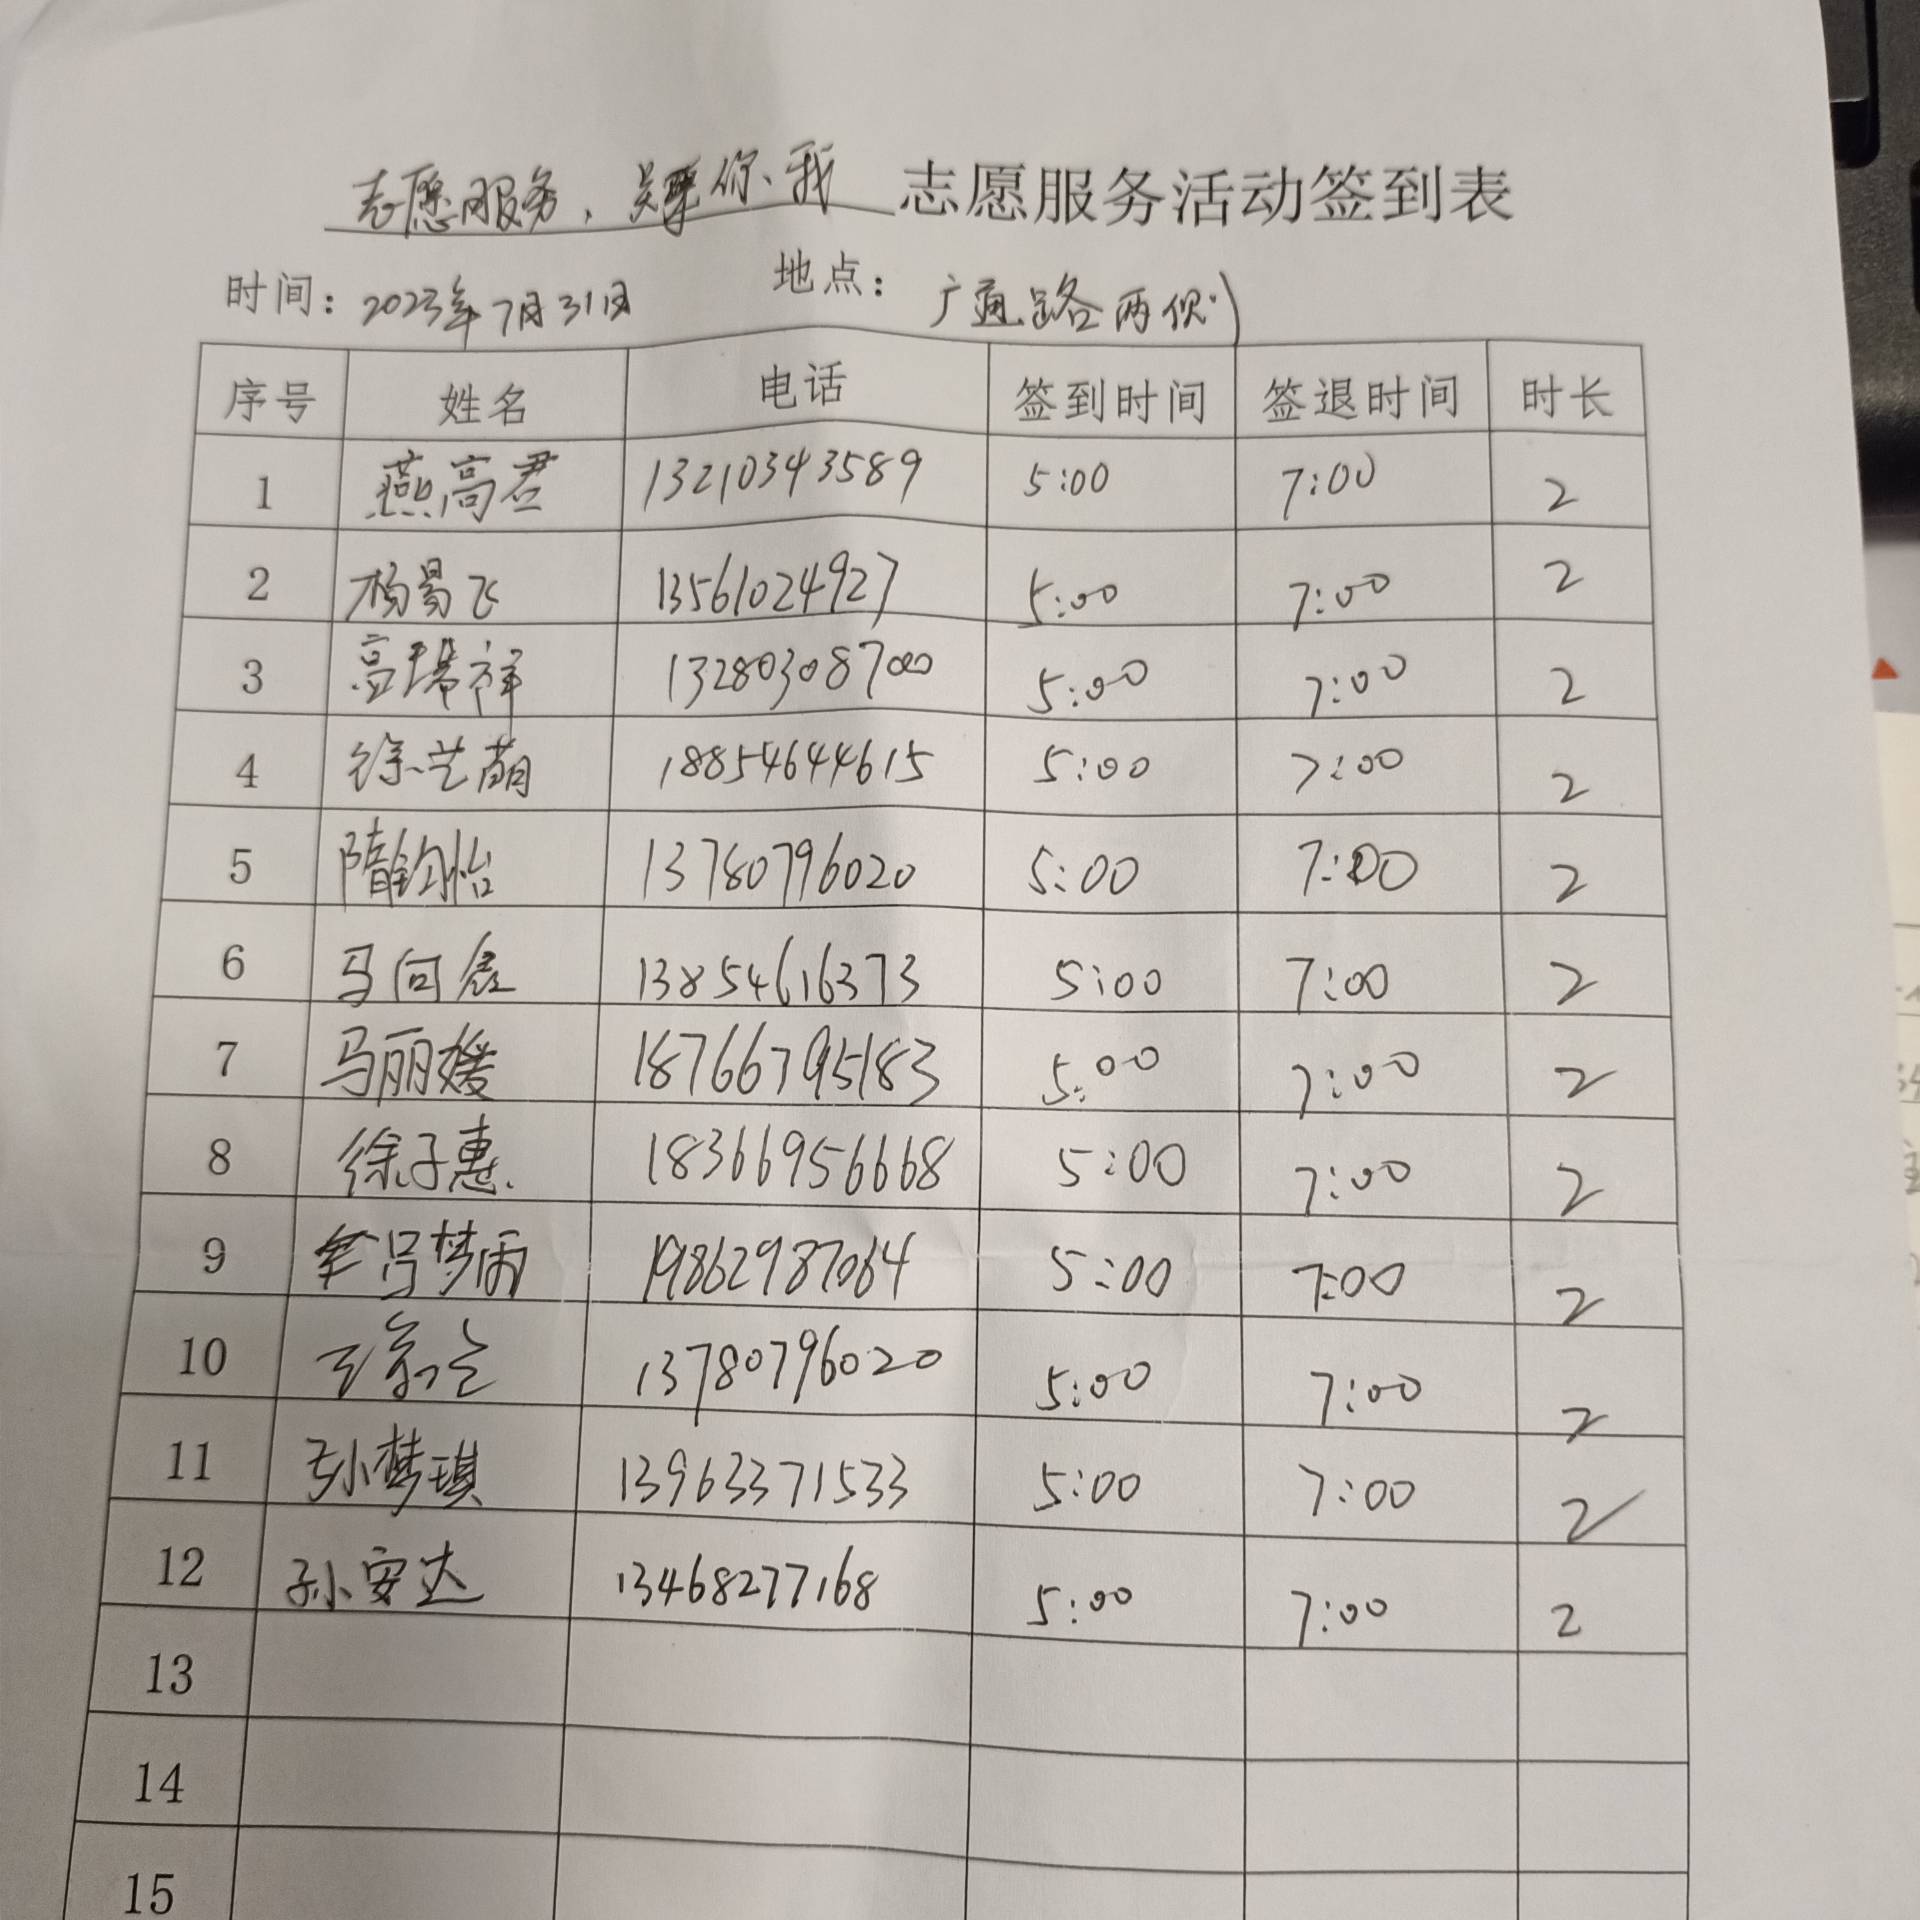 志愿服务，关系你、我 志愿服务活动签到表
时间：2023年7月31日 地点：广通路两侧
序号 姓名 电话 签到时间 签退时间 时长
1 燕高君 13210343589 5:00 7:00 2
2 杨易飞 13561024927 5:00 7:00 2
3 高瑞祥 13280308700 5:00 7:00 2
4 徐艺萌 18854644615 5:00 7:00 2
5 隋钧怡 13780796020 5:00 7:00 2
6 马向 13854616373 5:00 7:00 2
7 马丽媛 18766795183 5:00 7:00 2
8 徐子惠 18366956668 5:00 7:00 2
9 梦雨 19862987064 5:00 7:00 2
10 王 13780796020 5:00 7:00 2
11 孙梦琪 13963371533 5:00 7:00 2
12 孙安达 13468277168 5:00 7:00 2
13
14
15